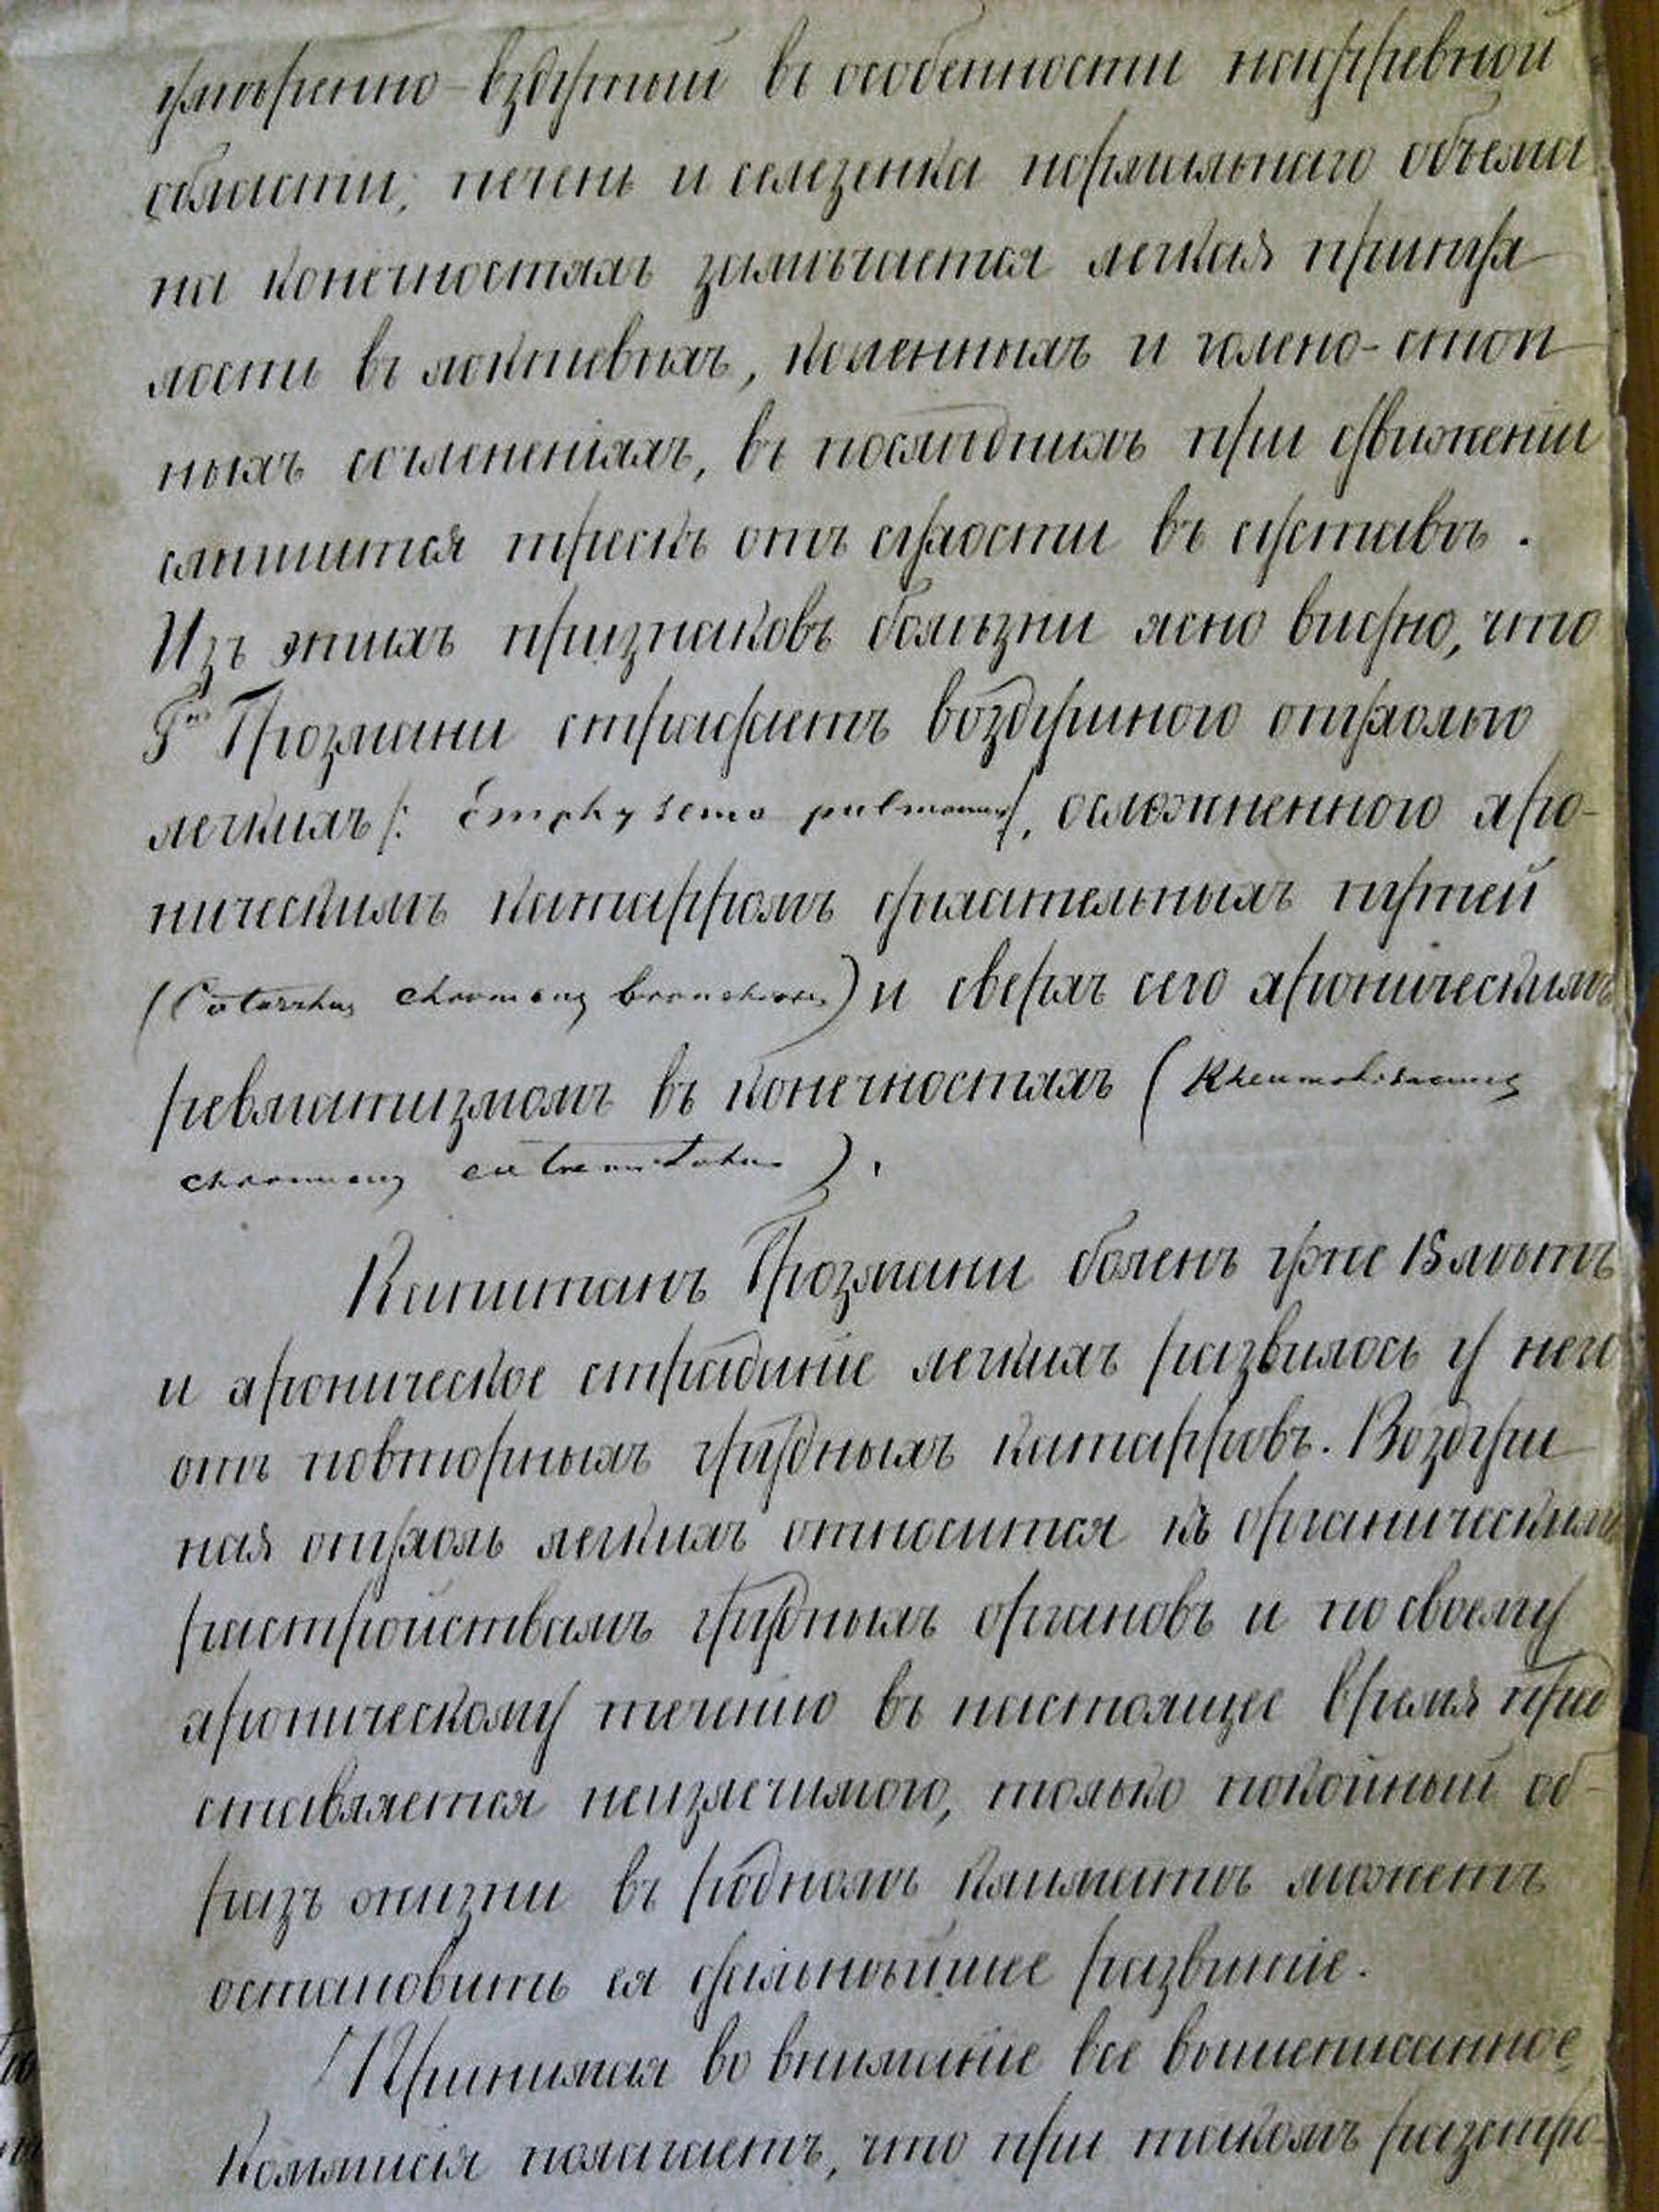 умѣренно-вздутый въ особенности начревной
области; печень и селезенка нормальнаго объема
на конечностяхъ замѣчается легкая припух
лость въ локтевыхъ, коленныхъ и голено-стоп
ныхъ сочлененіяхъ, въ последнихъ при движеніи
слышится трескъ отъ сухости въ суставѣ.
Изъ этихъ признаковъ болѣзни ясно видно, что
Гнъ Грозмани страдаетъ воздушною опухолью
легкихъ /: Emphysema pulmonum/, осложненною хро-
ническимъ катарромъ дыхательныхъ путей
(Catarrhus chronicus bronchiorum) и сверхъ сего хроническимъ
ревматизмомъ въ конечностяхъ (Rheumatismus
chronicus extremitatum).
Капитанъ Грозмани боленъ уже 15 лѣтъ
и хроническое страданіе легкихъ развилось у него
отъ повторныхъ грудныхъ катарровъ. Воздуш
ная опухоль легкихъ относится къ органическимъ
растройствамъ грудныхъ органовъ и по своему
хроническому теченію въ настоящее время пред
ставляется неизлечимою, только покойный об-
разъ жизни въ родномъ климатѣ можетъ
остановить ея дальнѣйшее развитіе.
Принимая во вниманіе все вышеписанное
Коммисія полагаетъ, что при такомъ разстро-